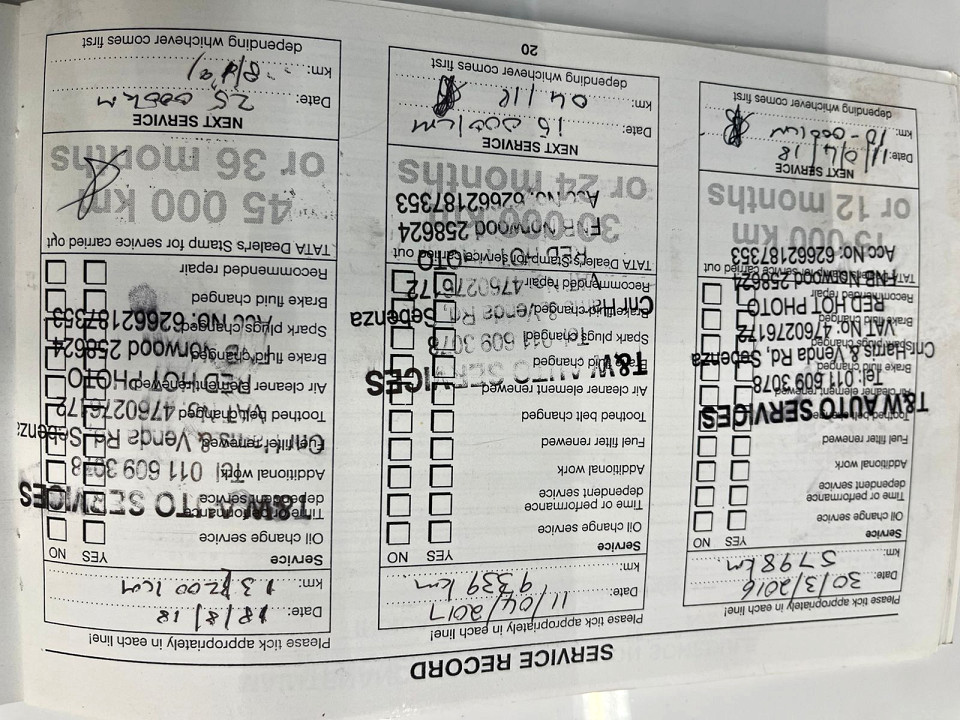 SERVICE RECORD
Please tick appropriately in each line!
Date: 30/3/2016
km: 5798 km
Service YES NO
Oil change service
Time or performance
dependent service
Additional work
Fuel filter renewed
Toothed belt changed
Air cleaner element renewed
Brake fluid changed
Spark plugs changed
Brake fluid changed
Recommended repair
TATA Dealer's Stamp for service carried out
T&W AUTO SERVICES
Tel: 011 609 3078
Cnr Harris & Venda Rd, Sebenza
VAT No: 4760276172
RED HOT PHOTO
FNB Norwood 258624
Acc No: 62662187353
15 000 km
or 12 months
NEXT SERVICE
Date: 11/04/18
km: 10-000km
depending whichever comes first
Please tick appropriately in each line!
Date: 11/04/2017
km: 9339 km
Service YES NO
Oil change service
Time or performance
dependent service
Additional work
Fuel filter renewed
Toothed belt changed
Air cleaner element renewed
Brake fluid changed
Spark plugs changed
Brake fluid changed
Recommended repair
TATA Dealer's Stamp for service carried out
T&W AUTO SERVICES
011 609 3078
Venda Rd, Sebenza
VAT No: 4760276172
RED HOT PHOTO
FNB Norwood 258624
Acc No: 62662187353
30 000 km
or 24 months
NEXT SERVICE
Date: 15 000km
km: 04/18
depending whichever comes first
Please tick appropriately in each line!
Date: 18/8/18
km: 13200 km
Service YES NO
Oil change service
Time or performance
dependent service
Additional work
Fuel filter renewed
Toothed belt changed
Air cleaner element renewed
Brake fluid changed
Spark plugs changed
Brake fluid changed
Recommended repair
TATA Dealer's Stamp for service carried out
T&W AUTO SERVICES
Tel: 011 609 3078
& Venda Rd, Sebenza
VAT No: 4760276172
RED HOT PHOTO
Norwood 258624
Acc No: 62662187353
45 000 km
or 36 months
NEXT SERVICE
Date: 25 000km
km:
depending whichever comes first
20